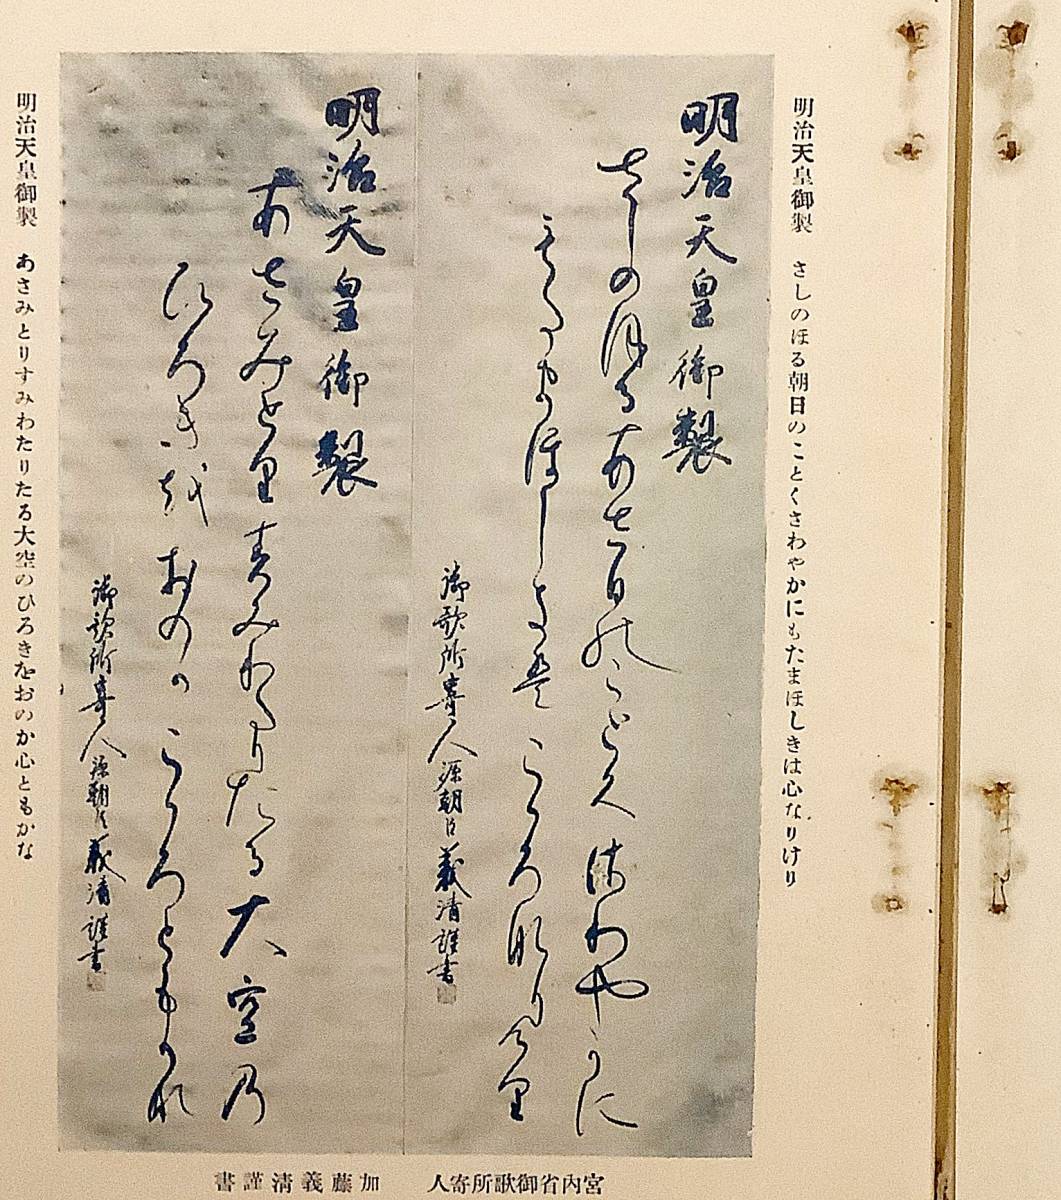 明治天皇御製　さしのほる朝日のことくさわやかにもたまほしきは心なりけり
明治天皇御製
さしのほるあさ日のことくさわやかに
もたまほしきはこゝろなりけり
御歌所寄人源朝臣義清謹書
明治天皇御製
あさみとりすみわたりたる大空乃
ひろきをおのかこゝろともかな
御歌所寄人源朝臣義清謹書
明治天皇御製　あさみとりすみわたりたる大空のひろきをおのか心ともかな
宮內省御歌所寄人　加藤義清謹書